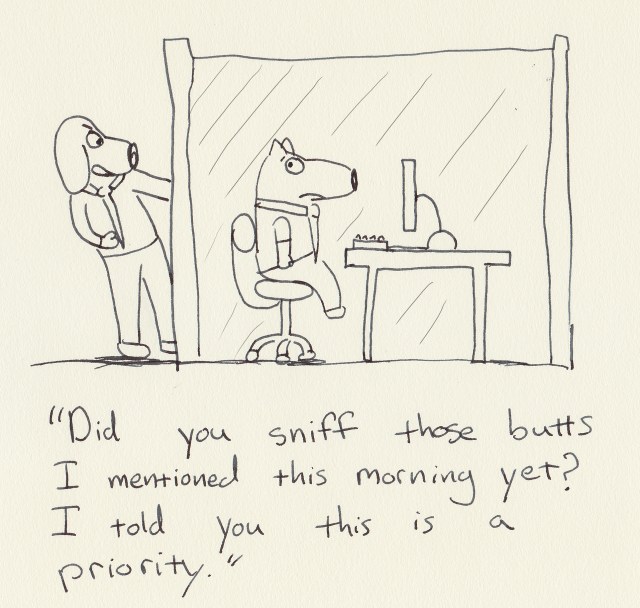 "Did you sniff those butts
I mentioned this morning yet?
I told you this is a
priority."